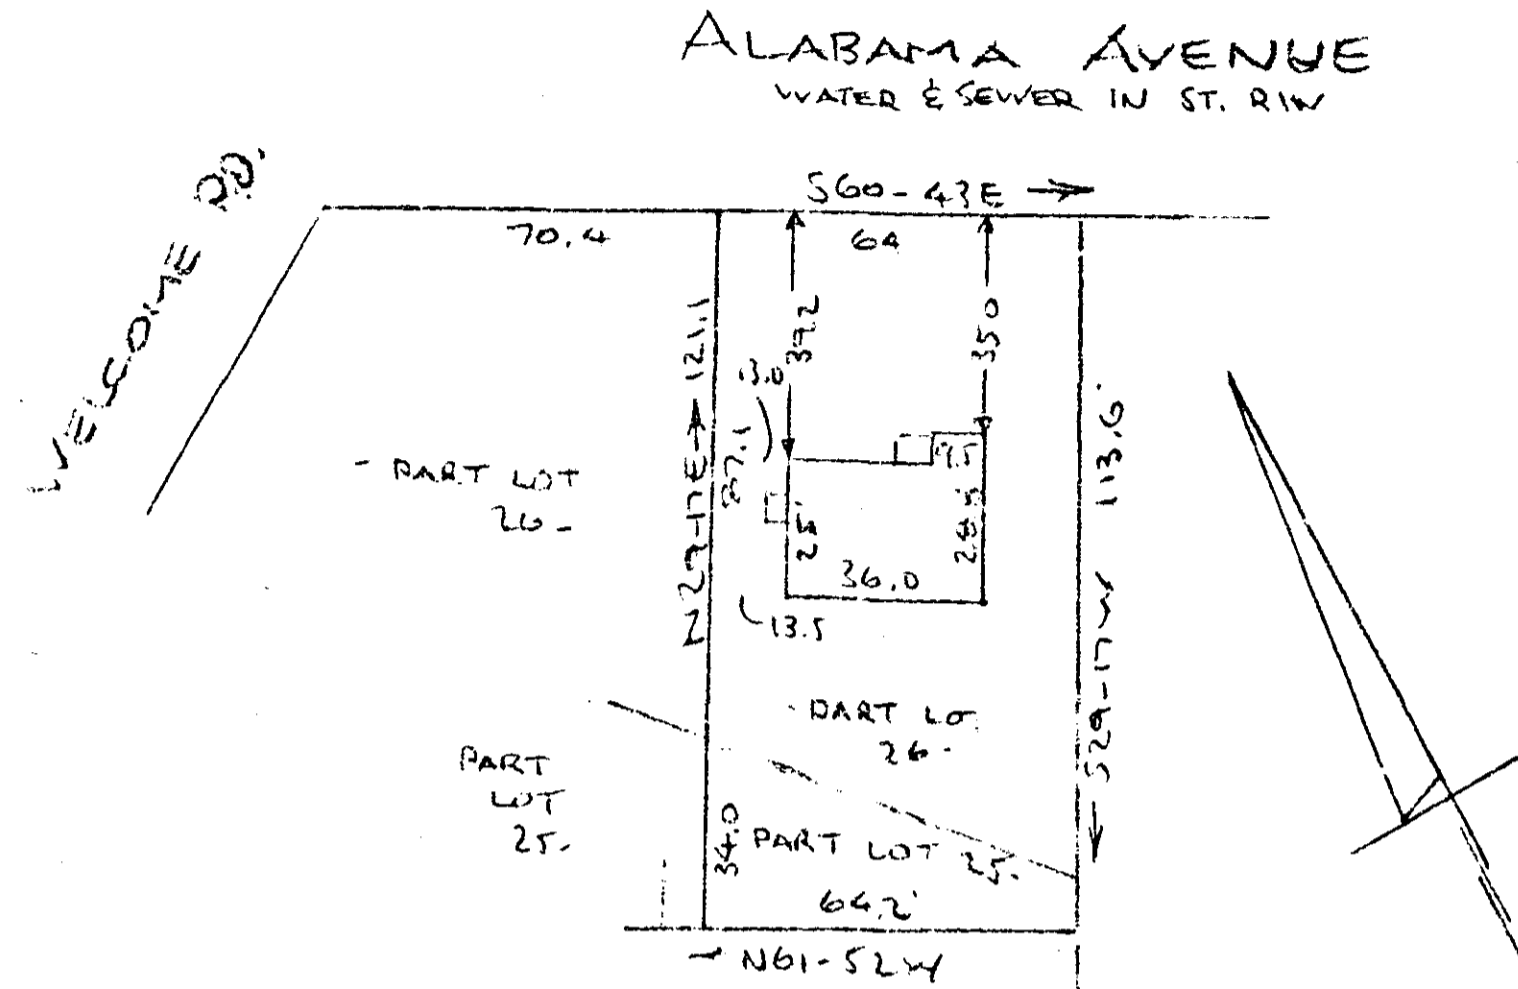 ALABAMA AVENUE
WATER & SEWER IN ST. R/W
WELCOME RD.
S60-43E
70.4
64
N29-17E 121.1
39.2
35.0
13.0
87.1
9.5
25'
28.5
36.0
13.5
S29-17W 113.6'
- PART LOT
26 -
- PART LOT
26 -
PART
LOT
25 -
34.0
PART LOT 25 -
64.2'
N61-52W